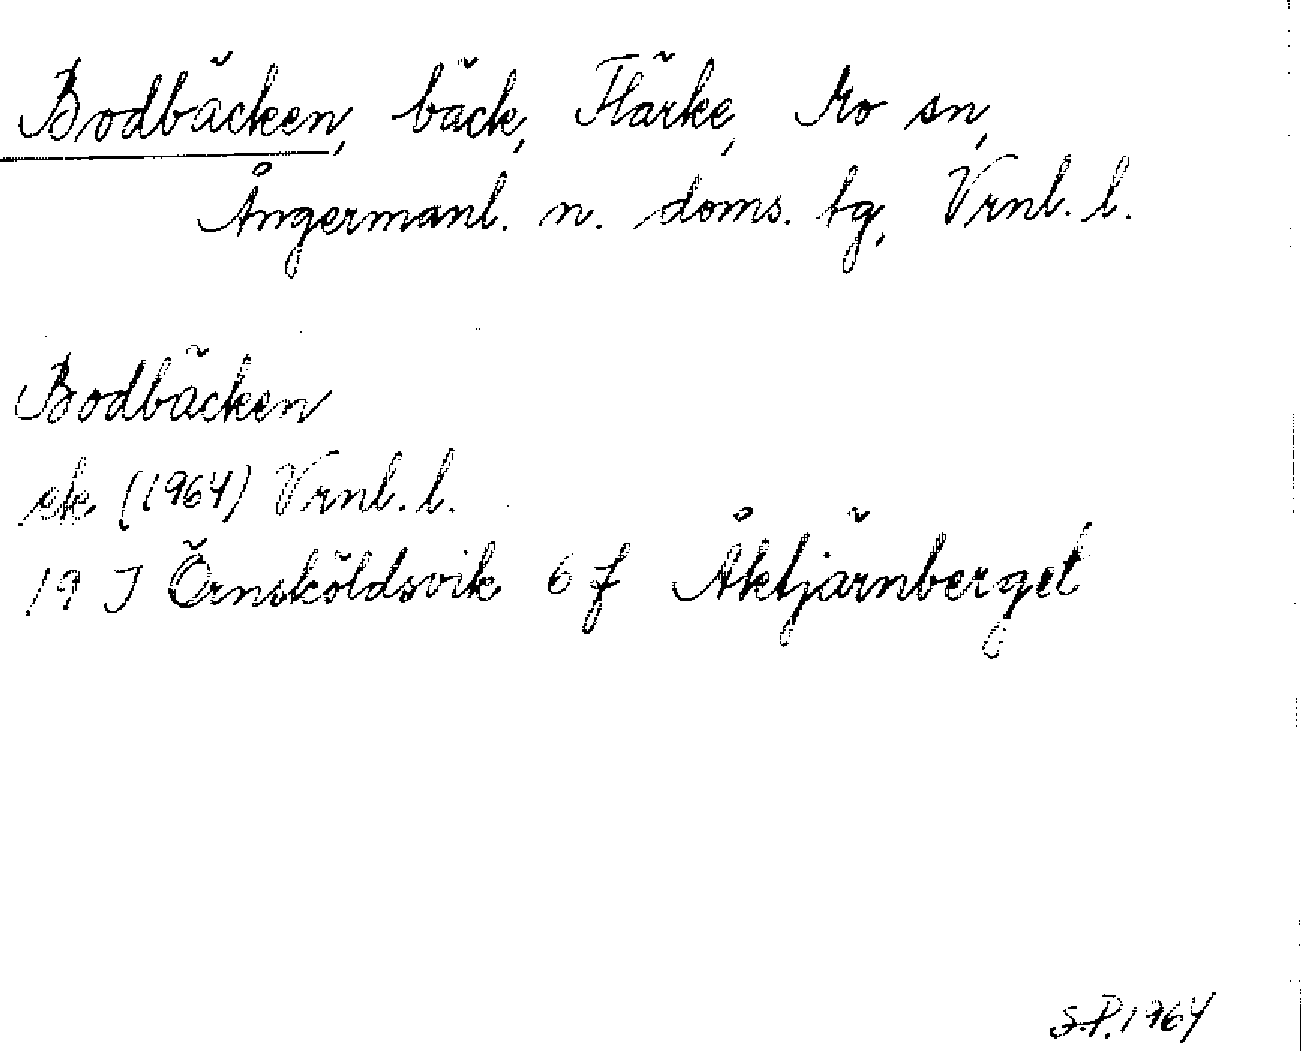 Bodbäcken, bäck, Flärke, Mo sn,
Ångermanl. n. doms. tg, Vrnl. l.
Bodbäcken
ek (1964) Vrnl. l.
19 J Örnsköldsvik 6 f Åktjärnberget
S.P. 1964